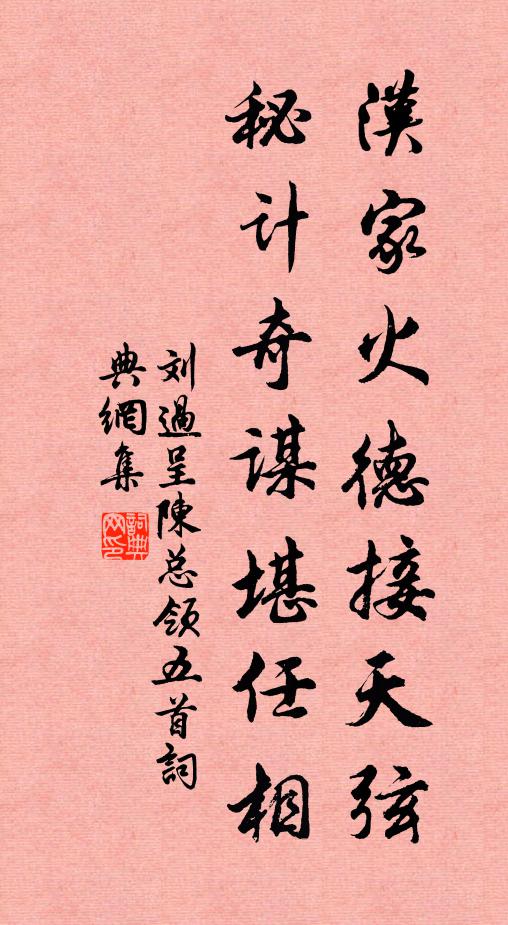 漢家火德接天弦
秘计奇謀堪任相
刘過呈陳总领五首詞
典網集
詞典
网印